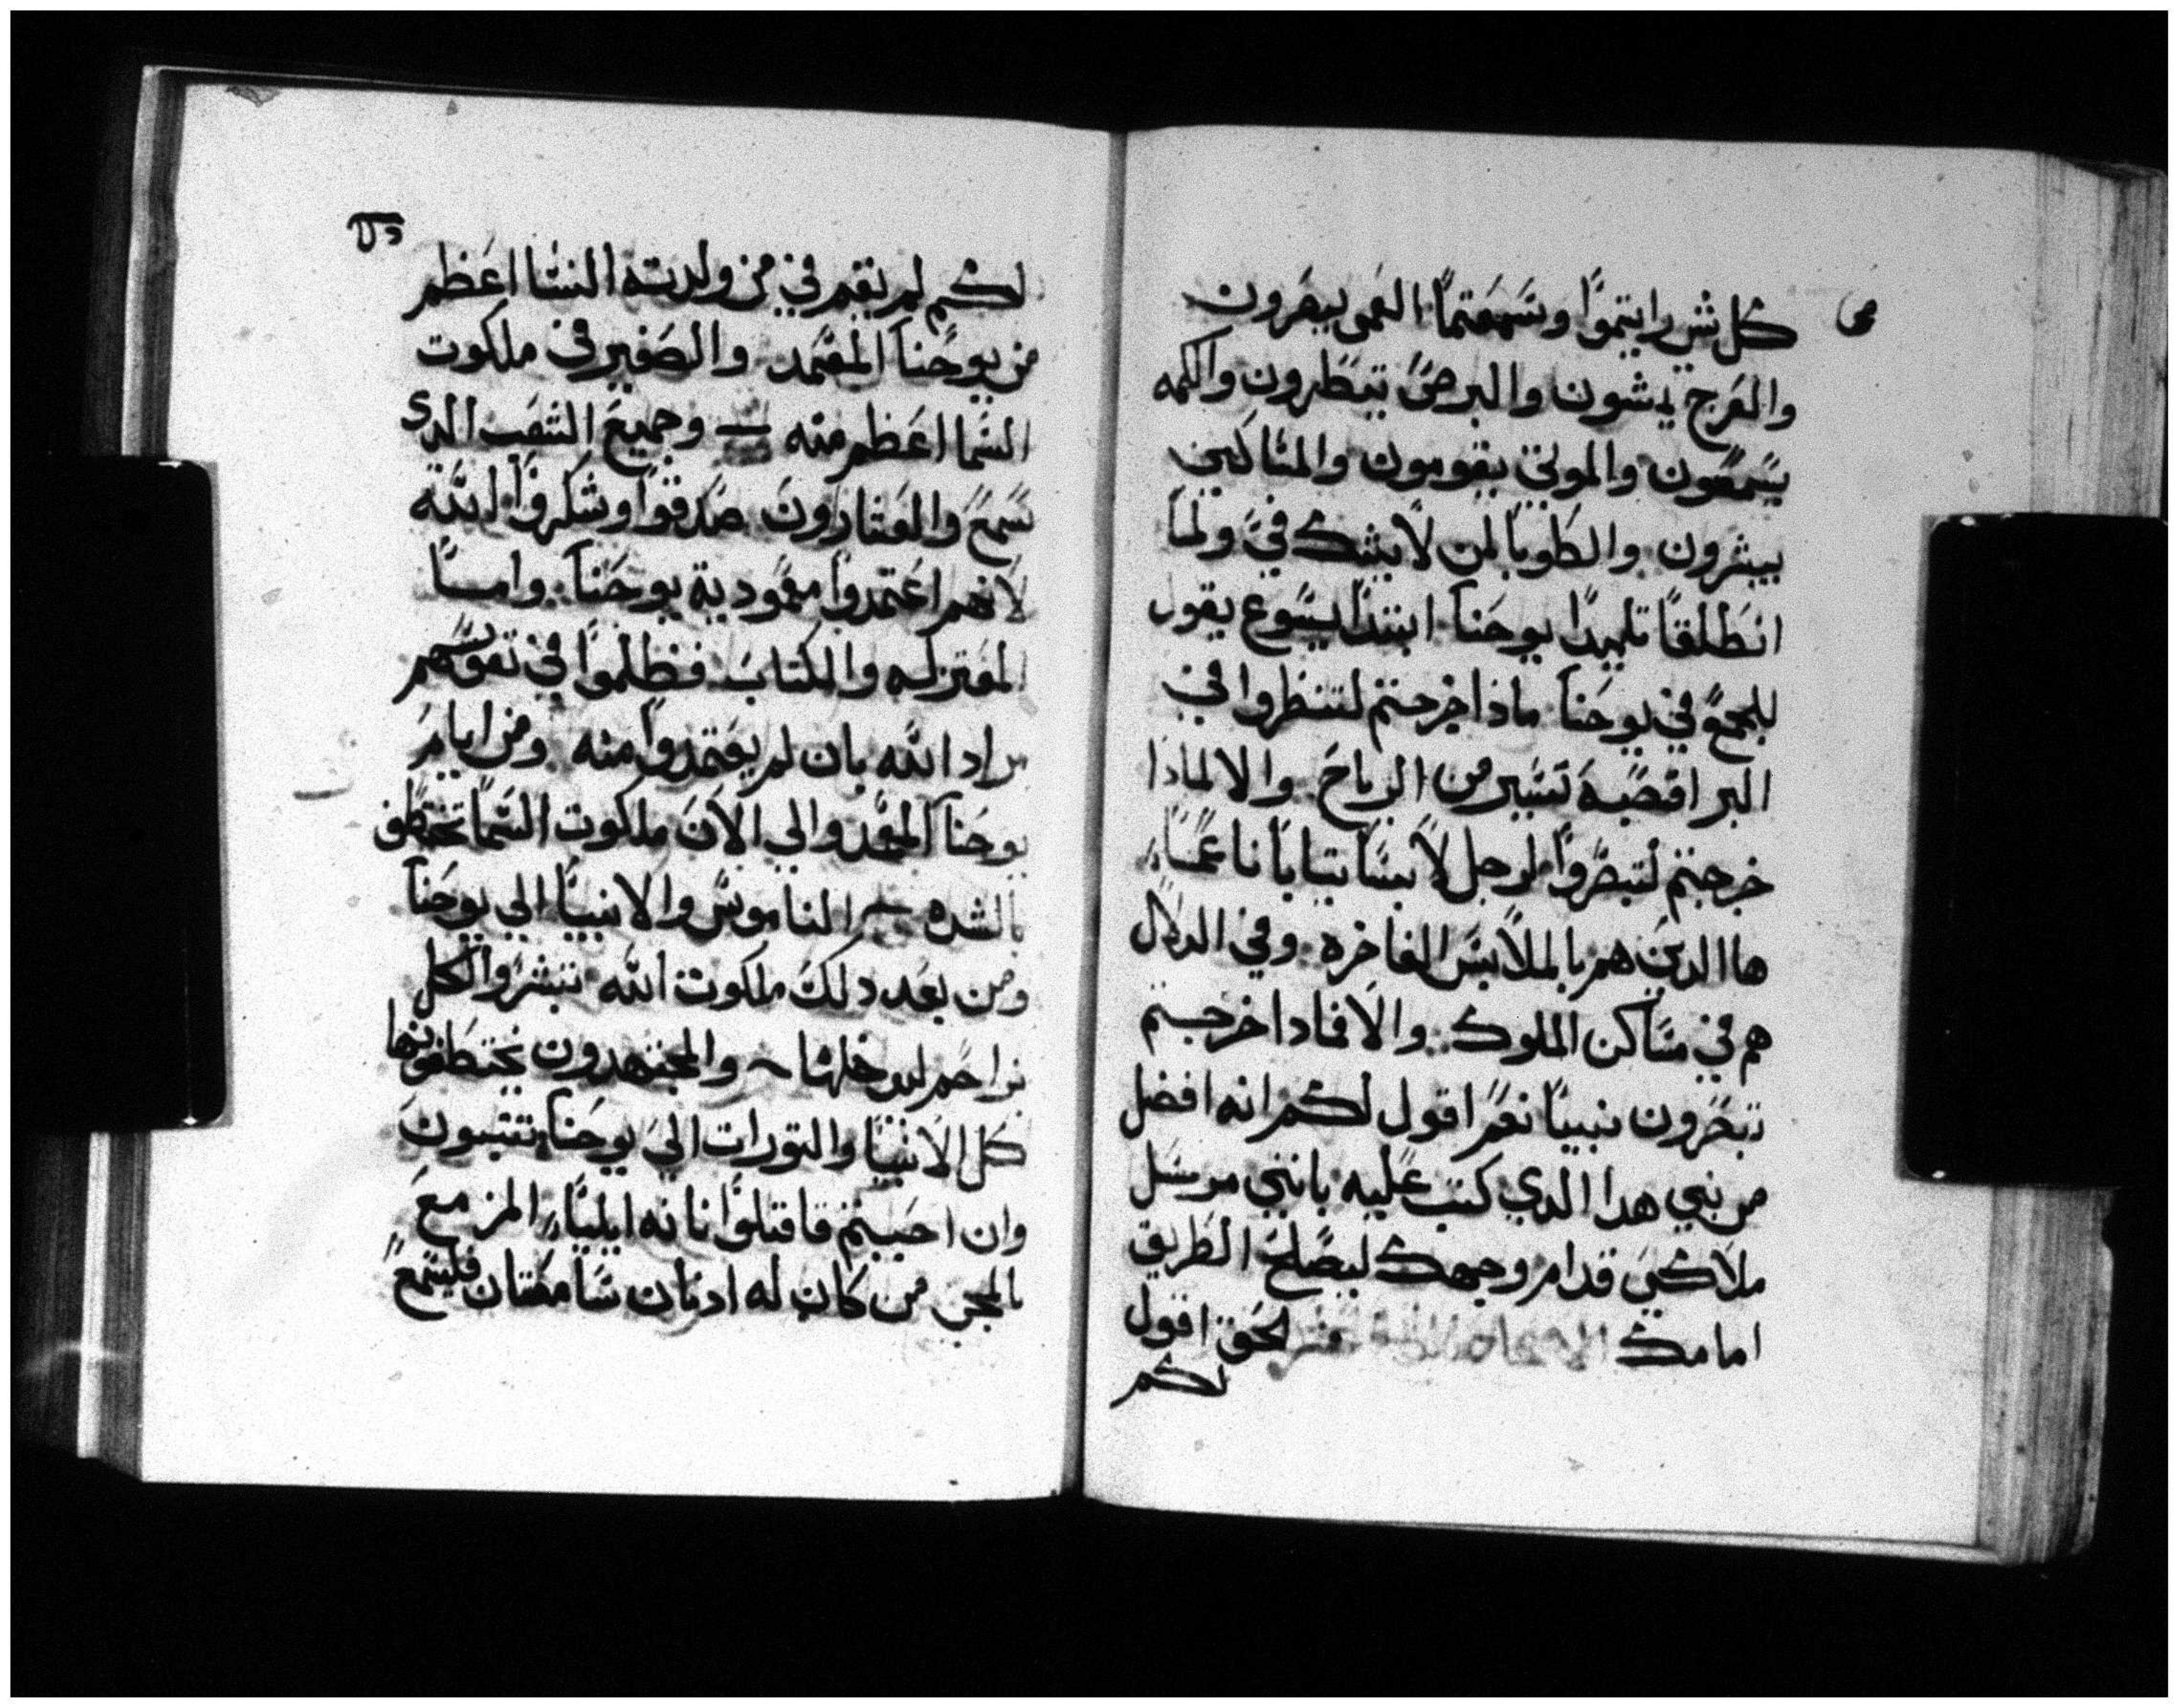 كل شي رايتموا وسمعتما العمي يبصرون
والعرج يمشون والبرص يتطهرون والكمه
يسمعون والموتي يقومون والمساكين
يبشرون والطوبا لمن لا يشك في ولما
انطلقا تلميدا يوحنا ابتدا يسوع يقول
للجمع في يوحنا مادا خرجتم لتنظروا في
البر اقصبة تسير من الرياح والا لمادا
خرجتم لتبصروا لرجل لابسا تيابا ناعما
ها الدين هم بالملابس الفاخره وفي الدلال
هم في مساكن الملوك والا فمادا خرجتم
تبصرون نبيا نعم اقول لكم انه افضل
من نبي هدا الدي كتب عليه بانني مرسل
ملاكي قدام وجهك ليصلح الطريق
امامك الحق اقول
لكم
لكم لم يقم في من ولدته النسا اعظم
من يوحنا المعمد والصغير في ملكوت
السما اعظم منه وجميع الشعب الدي
سمع والعشارون صدقوا وشكروا لله
لانهم اعتمدوا معمودية يوحنا واما
المعتزله والكتاب فظلموا في نفوسهم
مراد الله بان لم يعتمدوا منه ومن ايام
يوحنا المعمد والي الان ملكوت السما تختطف
بالشده الناموس والانبيا الي يوحنا
ومن بعد دلك ملكوت الله تبشر والكل
تزاحم ليدخلها والمجتهدون يختطفونها
كل الانبيا والتورات الي يوحنا تنبون
وان احببتم فاقبلوا فانه ايليا المزمع
بالمجي من كان له ادنان سامعتان فليسمع